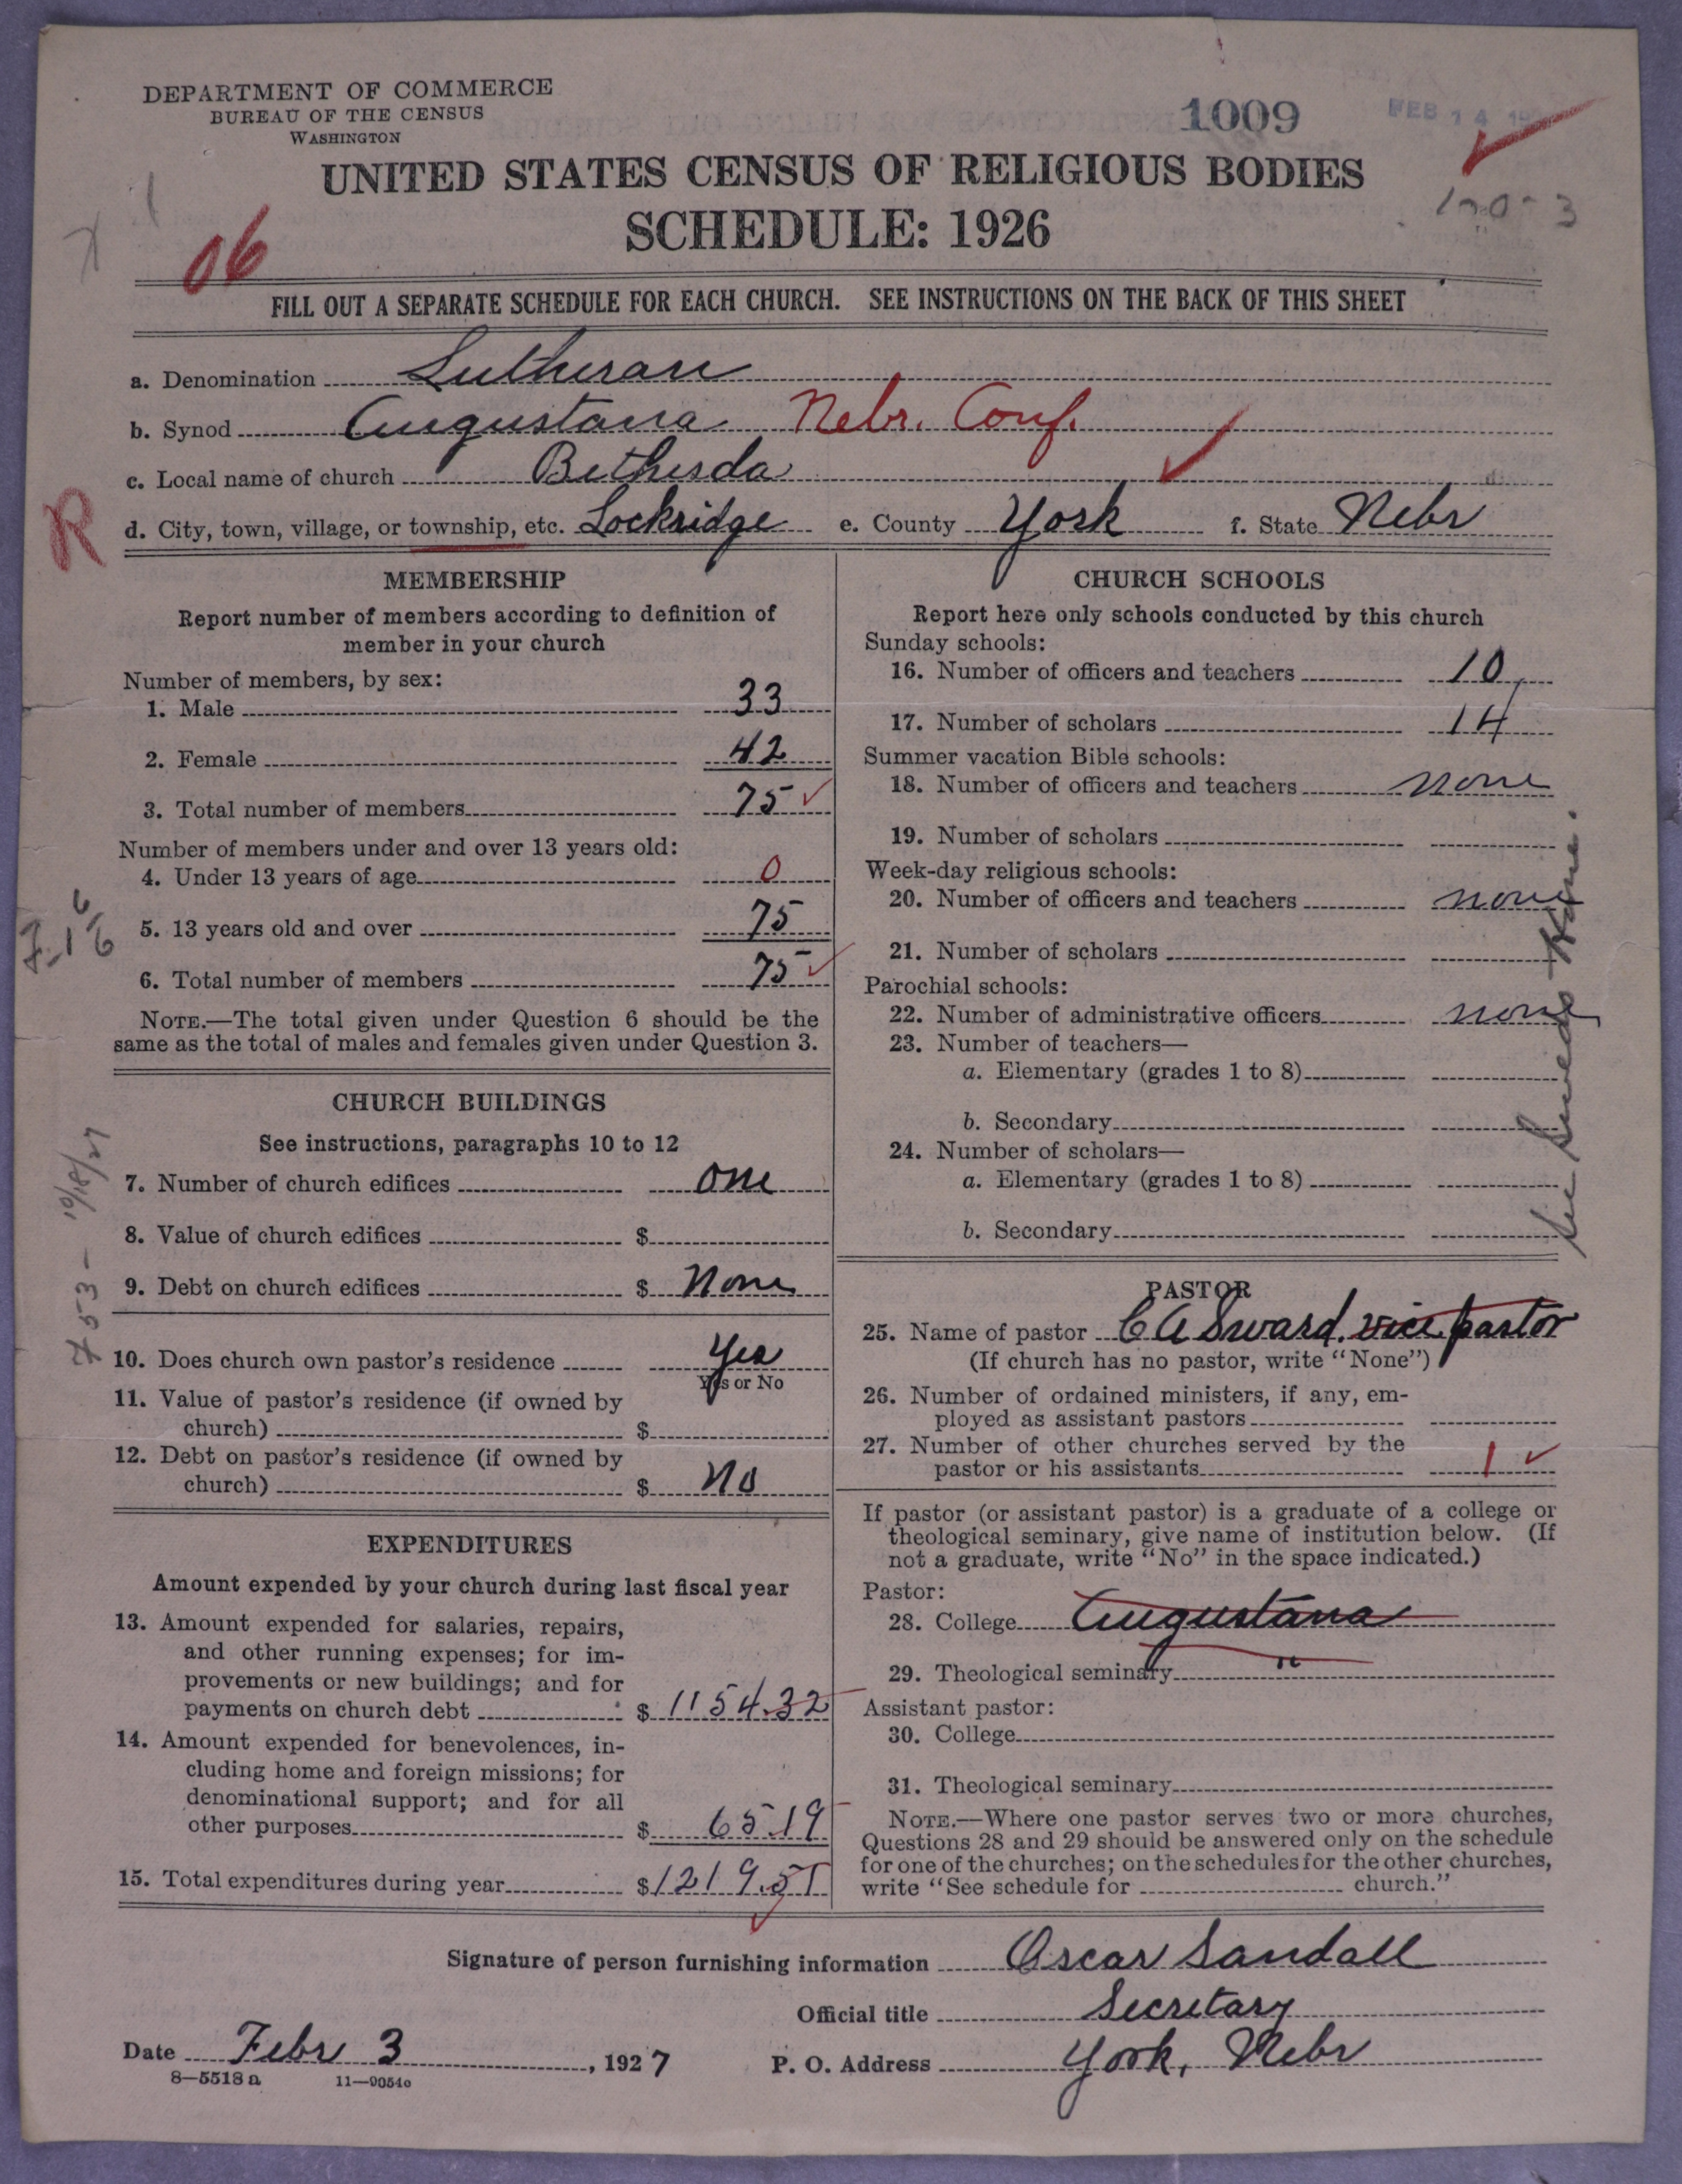 DEPARTMENT OF COMMERCE
BUREAU OF THE CENSUS
WASHINGTON
1009
FEB 14
UNITED STATES CENSUS OF RELIGIOUS BODIES
SCHEDULE: 1926
06
FILL OUT A SEPARATE SCHEDULE FOR EACH CHURCH. SEE INSTRUCTIONS ON THE BACK OF THIS SHEET
a. Denomination Lutheran
b. Synod Augustana Nebr. Conf.
c. Local name of church Bethesda
R
d. City, town, village, or township, etc. Lockridge e. County York f. State Nebr
MEMBERSHIP
Report number of members according to definition of
member in your church
Number of members, by sex:
1. Male 33
2. Female 42
3. Total number of members 75 ✓
Number of members under and over 13 years old:
4. Under 13 years of age 0
5. 13 years old and over 75
6. Total number of members 75 ✓
NOTE.—The total given under Question 6 should be the
same as the total of males and females given under Question 3.
CHURCH BUILDINGS
See instructions, paragraphs 10 to 12
7. Number of church edifices one
8. Value of church edifices $
9. Debt on church edifices $ None
10. Does church own pastor's residence Yes
Yes or No
11. Value of pastor's residence (if owned by
church) $
12. Debt on pastor's residence (if owned by
church) $ No
EXPENDITURES
Amount expended by your church during last fiscal year
13. Amount expended for salaries, repairs,
and other running expenses; for im-
provements or new buildings; and for
payments on church debt $ 1154.32
14. Amount expended for benevolences, in-
cluding home and foreign missions; for
denominational support; and for all
other purposes $ 65.19
15. Total expenditures during year $ 1219.51
CHURCH SCHOOLS
Report here only schools conducted by this church
Sunday schools:
16. Number of officers and teachers 10
17. Number of scholars 14
Summer vacation Bible schools:
18. Number of officers and teachers none
19. Number of scholars
Week-day religious schools:
20. Number of officers and teachers none
21. Number of scholars
Parochial schools:
22. Number of administrative officers none
23. Number of teachers—
a. Elementary (grades 1 to 8)
b. Secondary
24. Number of scholars—
a. Elementary (grades 1 to 8)
b. Secondary
PASTOR
25. Name of pastor C A Sward, vice pastor
(If church has no pastor, write "None")
26. Number of ordained ministers, if any, em-
ployed as assistant pastors
27. Number of other churches served by the
pastor or his assistants 1 ✓
If pastor (or assistant pastor) is a graduate of a college or
theological seminary, give name of institution below. (If
not a graduate, write "No" in the space indicated.)
Pastor:
28. College Augustana
29. Theological seminary "
Assistant pastor:
30. College
31. Theological seminary
NOTE.—Where one pastor serves two or more churches,
Questions 28 and 29 should be answered only on the schedule
for one of the churches; on the schedules for the other churches,
write "See schedule for church."
Signature of person furnishing information Oscar Sandall
Official title Secretary
Date Febr 3, 1927 P. O. Address York, Nebr
8—5518 a 11—9054c